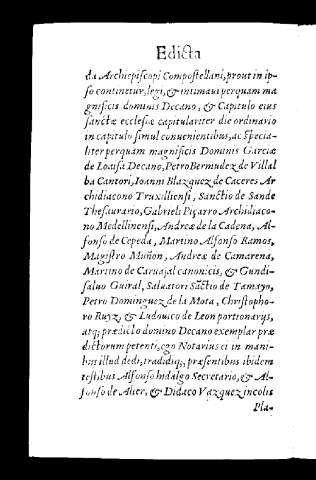 Edicta
da Archiepiscopi Compostellani, prout in ip-
so continetur, legi, & intimaui perquam ma
gnificis dominis Decano, & Capitulo eius
sanctæ ecclesiæ capitulariter die ordinario
in capitulo simul conuenientibus, ac specia-
liter perquam magnificis Dominis Garcia
de Loaisa Decano, Petro Bermudez de Villal
ba Cantori, Ioanni Blazquez de Caceres Ar
chidiacono Truxillensi, Sanctio de Sande
Thesaurario, Gabrieli Piçarro Archidiaco-
no Medellinensi, Andreæ de la Cadena, Al-
fonso de Cepeda, Martino Alfonso Ramos,
Magistro Muñon, Andreæ de Camarena,
Martino de Caruajal canonicis, & Gundi-
saluo Guiral, Saluatori Sãctio de Tamayo,
Petro Dominguez de la Mota, Christopho-
ro Ruyz, & Ludouico de Leon portionarys,
atq; prædicto domino Decano exemplar præ
dictorum petenti, ego Notarius ei in mani-
bus illud dedi, tradidiq;, præsentibus ibidem
testibus Alfonso hidalgo Secretario, & Al-
fonso de Alter, & Didaco Vazquez incolis
Pla-